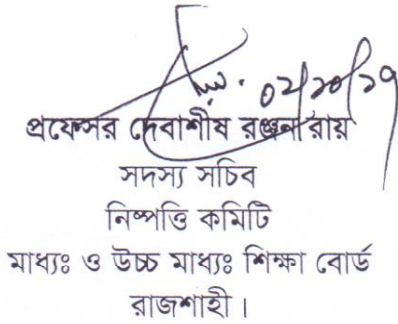 ০২/১০/১৭
প্রফেসর দেবাশীষ রঞ্জন রায়
সদস্য সচিব
নিষ্পত্তি কমিটি
মাধ্যঃ ও উচ্চ মাধ্যঃ শিক্ষা বোর্ড
রাজশাহী।